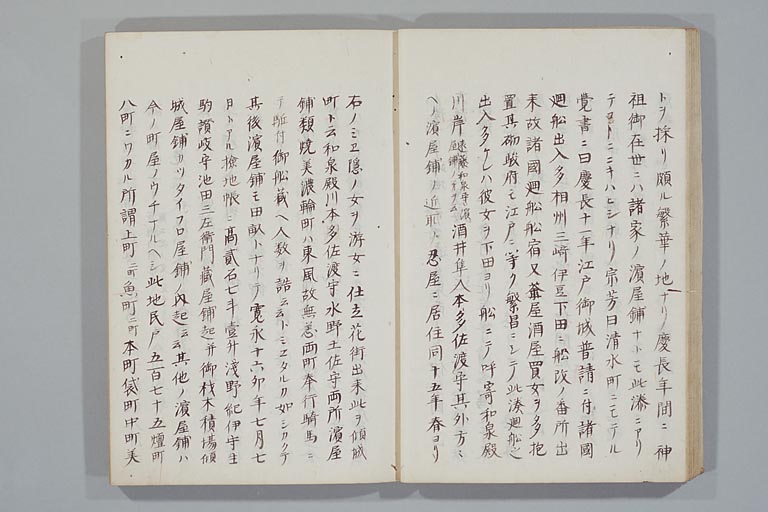 トヲ採リ頗ル繁華ノ地ナリノ慶長年間ニ神
祖御在世ニハ諸家ノ濱屋鋪ナトモ此湊ニアリ
テ ニキハヒシナリ宗芳曰清水町ニモテル
覺書ニ曰慶長十一年江戸御城普請ニ付諸國
廻船出入多相州三崎伊豆下田ニ船改ノ番所出
来故諸國廻船船宿又 屋酒屋買女ヲ多抱
置其砌駿府モ江戸ニ等ク繁昌ニシテ此湊廻船之
出入多ケレハ彼女ヲ下田ヨリ船ニテ呼寄和泉殿
川岸遠藤和泉守濱屋鋪ヲ云酒井隼人本多佐渡守其外方々
ヘノ濱屋鋪ノ近所ニ忍屋ニ居住同十五年春ヨリ
右ノミヱ隠ノ女ヲ游女ニ仕立花街出来此ヲ傾城
町ト云和泉殿川本多佐渡守水野土佐守両所濱屋
鋪類焼美濃輪町ハ東風故無恙両町奉行騎馬ニ
テ駈付御船藏ヘ人数ヲ詰云云トミヱタルカ如シカクテ
其後濱屋鋪モ田畝トナリテ寛永十六卯年七月七
日トアル撿地帳ニ高貳石七斗壹升淺野紀伊守生
駒讃岐守池田三左衛門藏屋鋪起并御材木積場傾
城屋鋪カツタイフロ屋鋪ノ内起云云其他ノ濱屋鋪ハ
今ノ町屋ノウチナルヘシ此地民戸五百七十五壇町
八町ニワカル所謂上町二町魚町二町本町袋町中町美